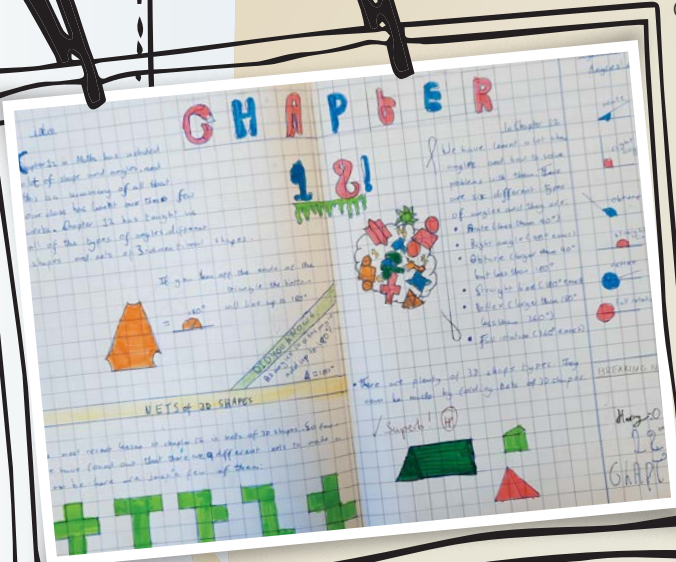 CHAPtER
12!
intro
Chapter 12 in Maths has included
lot of shape and angles and
this is a summary of all that
our class has learnt over these few
weeks. Chapter 12 has taught us
all of the types of angles, different
shapes and nets of 3
shapes.
If you tear off the ends of the
triangle the bottom
will line up to 180°
= 180°
DID YOU KNOW?
add up to 180°
Δ = 180°
NETS of 3D SHAPES
most recent lesson in chapter 12 is nets of 3D shapes. So far
have found out that there are different nets to make a
be here are just a few of them:
In Chapter 12
We have learnt a lot about
angles and how to solve
problems with them. There
are six different types
of angles and they are:
• Acute (less than 90°)
• Right angle (90° exact)
• Obtuse (larger than 90°
but less than 180°)
• Straight line (180° exact)
• Reflex (larger than 180°
less than 360°)
• Full rotation (360° exact)
• There are plenty of 3D shape types. They
can be made by folding nets of 3D shapes
✓ Superb! H
acute
right
obtuse
reflex
BREAKING N
12
CHAPT